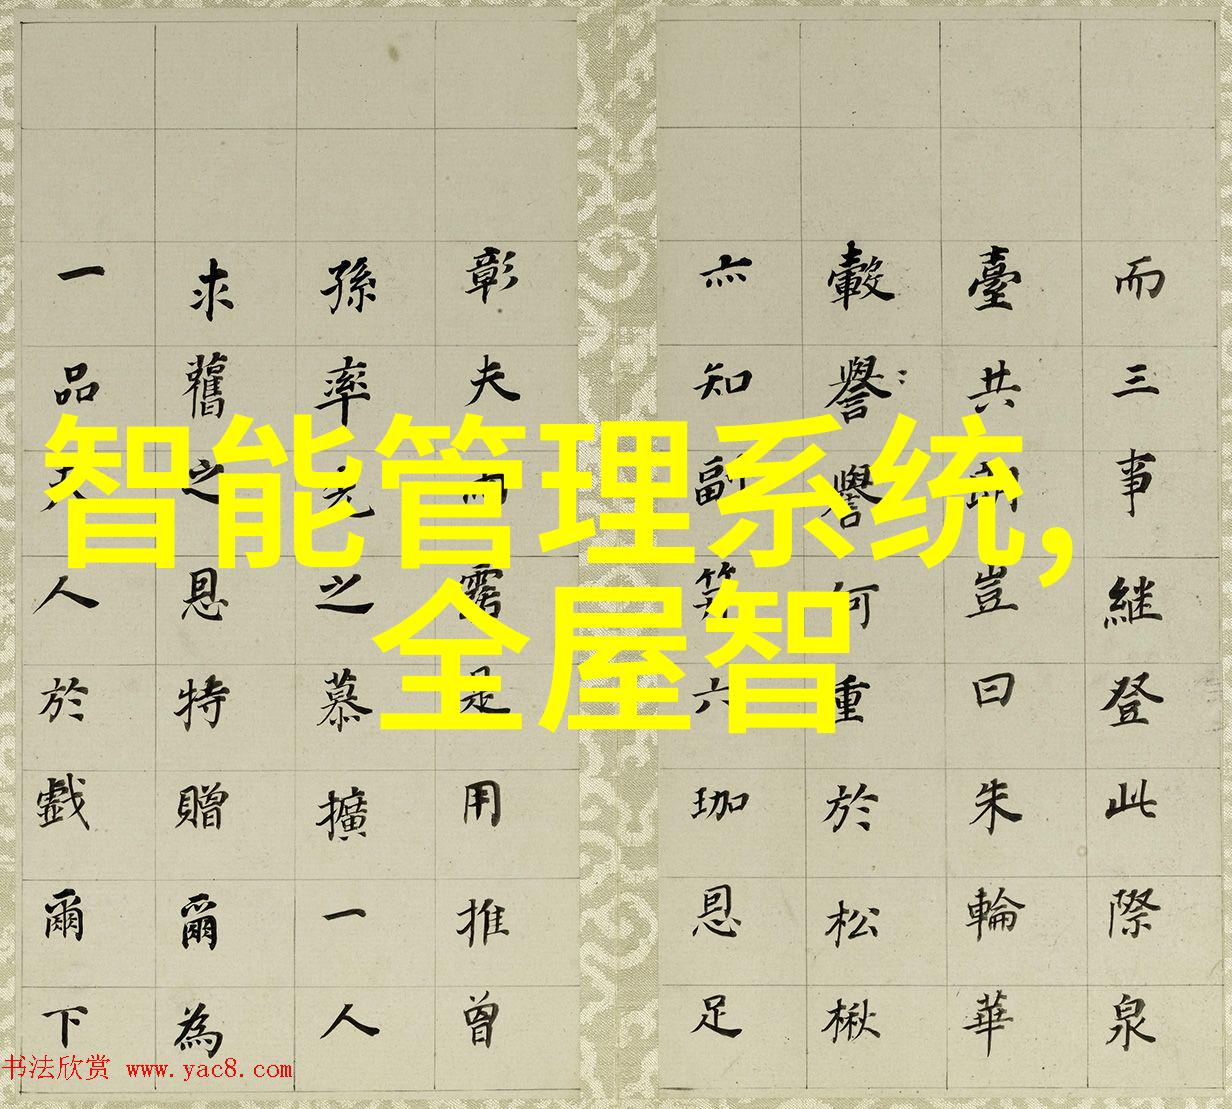 而三事継登此際泉
臺共豈曰朱輪華
轂譽譽何重於松楸
亦知副笄六珈恩足
彰夫而是用推曾
孫率先之慕擴一人
求舊之恩特贈爾為
一品夫人於戲爾下
智能管理系统,
全屋智
书法欣赏 www.yac8.com